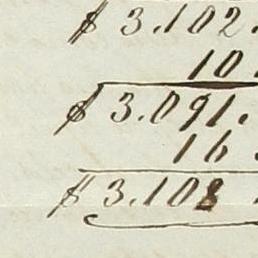 $ 3.102.
10
$ 3.091.
16
$ 3.108